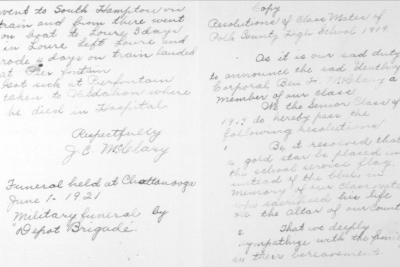 went to South Hampton on
train and from there went
on boat to Lovere 3 days
in Lovere left Lovere and
rode 4 days on train landed
at
Got sick at
taken to where
he died in Hospital
Respectfully
J.C. McClary
Funeral held at Chattanooga
June 1 - 1921
Military funeral by
"Depot Brigade."
Copy
Resolutions of Class Mates of
Polk County High School 1919
As it is our sad duty
to announce the sad death of
Corporal Ben F. McClary a
member of our class
We the Senior Class of
1919 do hereby pass the
following resolutions
Be it resolved that
a gold star be placed in
the school service flag
instead of the blue in
memory of our classmate
who sacrificed his life
on the altar of our count
That we deeply
sympathize with the family
in their bereavement